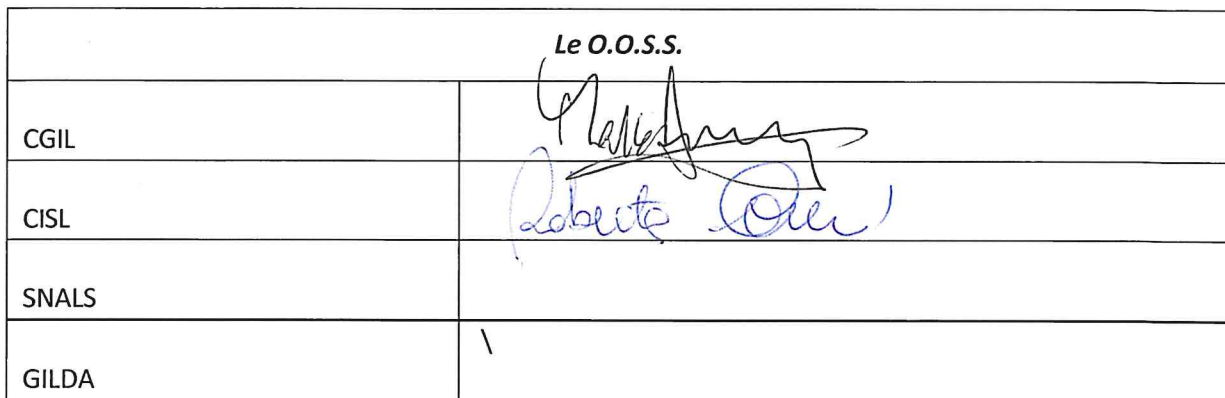 Le O.O.S.S.
CGIL
CISL
Roberta
SNALS
GILDA
\